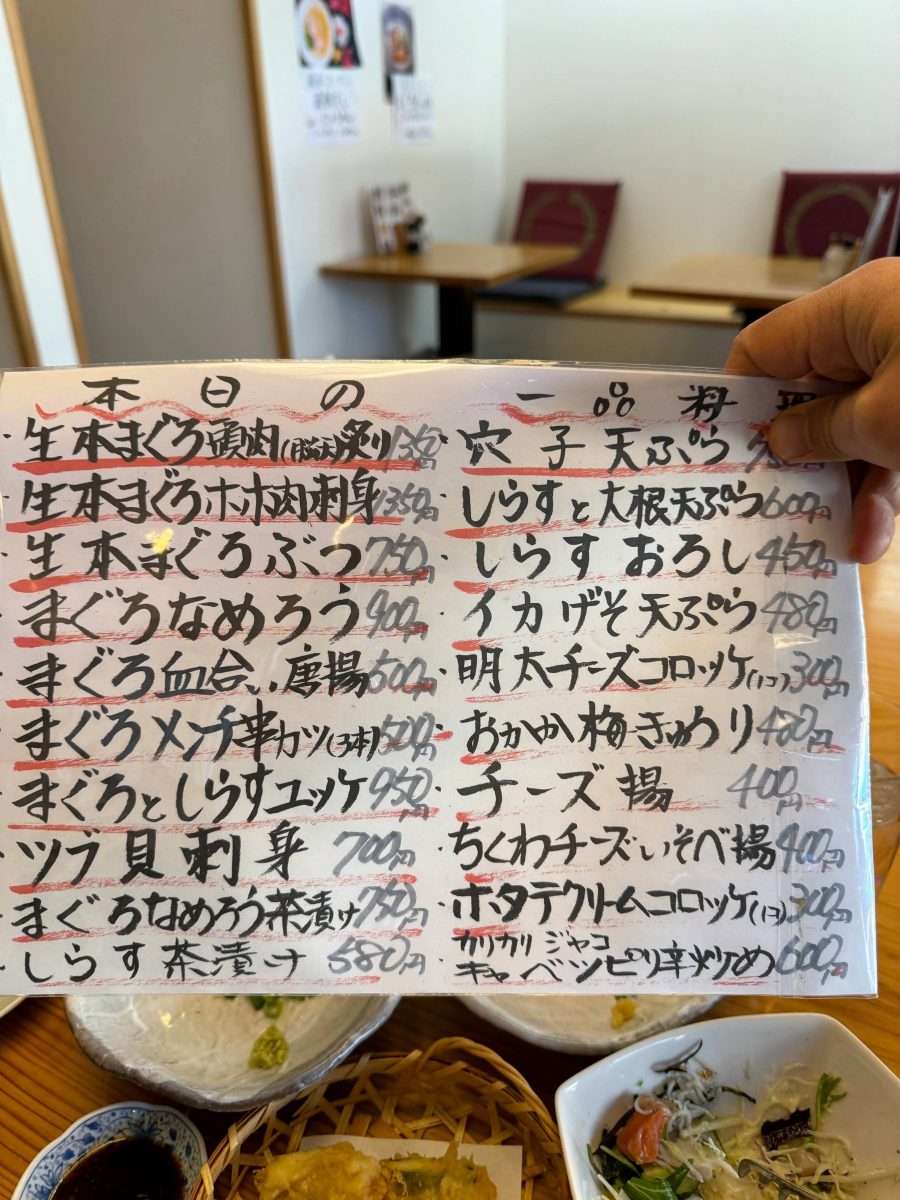 本日の一品料理
生本まぐろ頭肉(脳天)炙り 1350円
生本まぐろホホ肉刺身 1350円
生本まぐろぶつ 750円
まぐろなめろう 900円
まぐろ血合い唐揚 500円
まぐろメンチ串カツ(3本) 500円
まぐろとしらすユッケ 950円
ツブ貝刺身 700円
まぐろなめろう茶漬け 750円
しらす茶漬け 580円
穴子天ぷら
しらすと大根天ぷら 600円
しらすおろし 450円
イカげそ天ぷら 480円
明太チーズコロッケ(1コ) 300円
おかか梅きゅうり 480円
チーズ揚 400円
ちくわチーズいそべ揚 400円
ホタテクリームコロッケ(1コ) 300円
カリカリジャコ
キャベツピリ辛炒め 600円